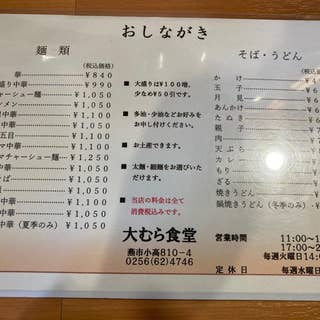 おしながき
麺 類
(税込価格)
華 ¥840
盛り中華 ¥990
チャーシュー麺 ¥1,050
ンメン ¥1,050
中華 ¥1,050
中華 ¥1,050
五目 ¥1,050
マ中華 ¥1,050
マチャーシュー麺 ¥1,250
そば ¥1,050
¥1,050
華 ¥1,050
中華 ¥1,050
中華(夏季のみ) ¥1,050
■ 大盛りは¥100増、
少なめ¥50引です。
■ 多油・少油などお好みを
お申し付けください。
■ お土産できます。
■ 太麺・細麺をお選びいた
だけます。
■ 当店の料金は全て
消費税込みです。
大むら食堂
燕市小高810-4
0256(62)4746
そば・うどん
(税込価格)
かけ
玉子
月見
あんかけ
たぬき
親子
肉
天ぷら
カレー
もり
ざる
焼きうどん
鍋焼きうどん(冬季のみ)
営業時間 11:00~1
17:00~2
毎週火曜日14:0
定休日 毎週水曜日